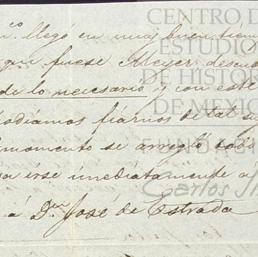 llegó en muy buen tiem
que fuese Meyer descu
de lo necesario y con este
podiamos fiarnos de tal su
momento se arregló todo
irse inmediatamente a
á Dn José de Estrada
CENTRO D
ESTUDIO
DE HISTOR
DE MEXIC
FUNDACI
Carlos Sli